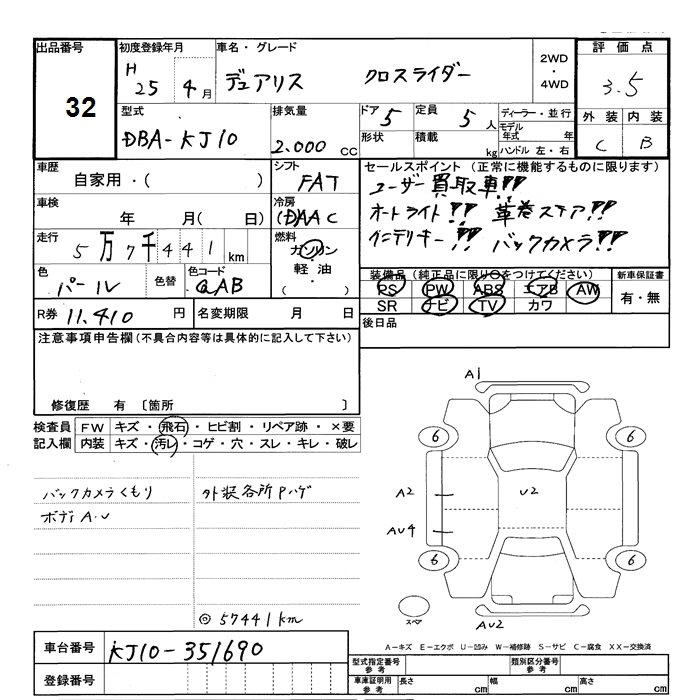 出品番号
32
初度登録年月
H 25 4 月
車名・グレード
デュアリス クロスライダー
2WD
・
4WD
評価点
3.5
型式
DBA-KJ10
排気量
2.000 CC
ドア 5
形状
定員 5 人
積載 kg
ディーラー・並行
モデル年式 年
ハンドル 左・右
外装 内装
C B
車歴
自家用・( )
シフト
FAT
セールスポイント (正常に機能するものに限ります)
ユーザー買取車!!
オートライト!! 革巻ステア!!
インテリキー!! バックカメラ!!
車検
年 月( 日)
冷房
(AAC
走行
5万7千441km
燃料
ガソリン
軽油
( ・ )
色
パール
色替
色コード
QAB
装備品 (純正品に限り○をつけてください)
PS PW ABS エアB AW
SR ナビ TV カワ
新車保証書
有・無
R券 11.410 円
名変期限 月 日
後日品
注意事項申告欄(不具合内容等は具体的に記入して下さい)
修復歴 有 〔箇所 〕
検査員記入欄
FW キズ・飛石・ヒビ割・リペア跡・×要
内装 キズ・汚レ・コゲ・穴・スレ・キレ・破レ
バックカメラくもり 外装各所Pハゲ
ボディA・U
◎57441km
A1
6 6
A2 U2
AU4
6 6
スペア
AU2
A-キズ E-エクボ U-凹み W-補修跡 S-サビ C-腐食 XX-交換済
車台番号 KJ10-351690
登録番号
型式指定番号 参考
類別区分番号 参考
車庫証明用 参考 長さ cm 幅 cm 高さ cm